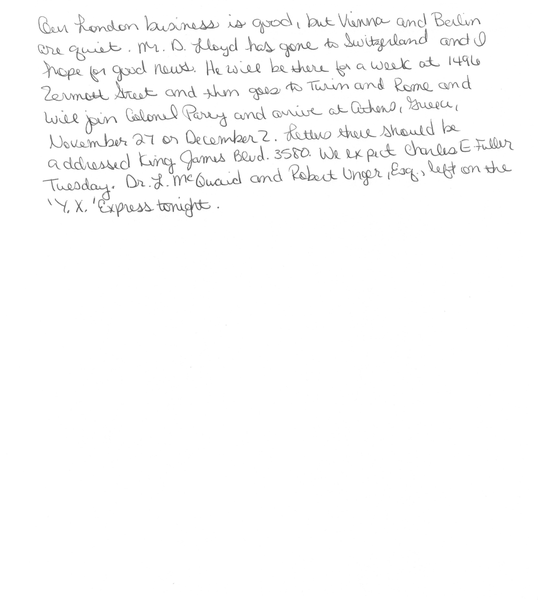 Our London business is good, but Vienna and Berlin
are quiet. Mr. D. Lloyd has gone to Switzerland and I
hope for good news. He will be there for a week at 1496
Zermott Street and then goes to Turin and Rome and
will join Colonel Parry and arrive at Athens, Greece,
November 27 or December 2. Letters there should be
addressed King James Blvd. 3580. We expect Charles E Fuller
Tuesday. Dr. L. McQuaid and Robert Unger, Esq., left on the
'Y. X.' Express tonight.